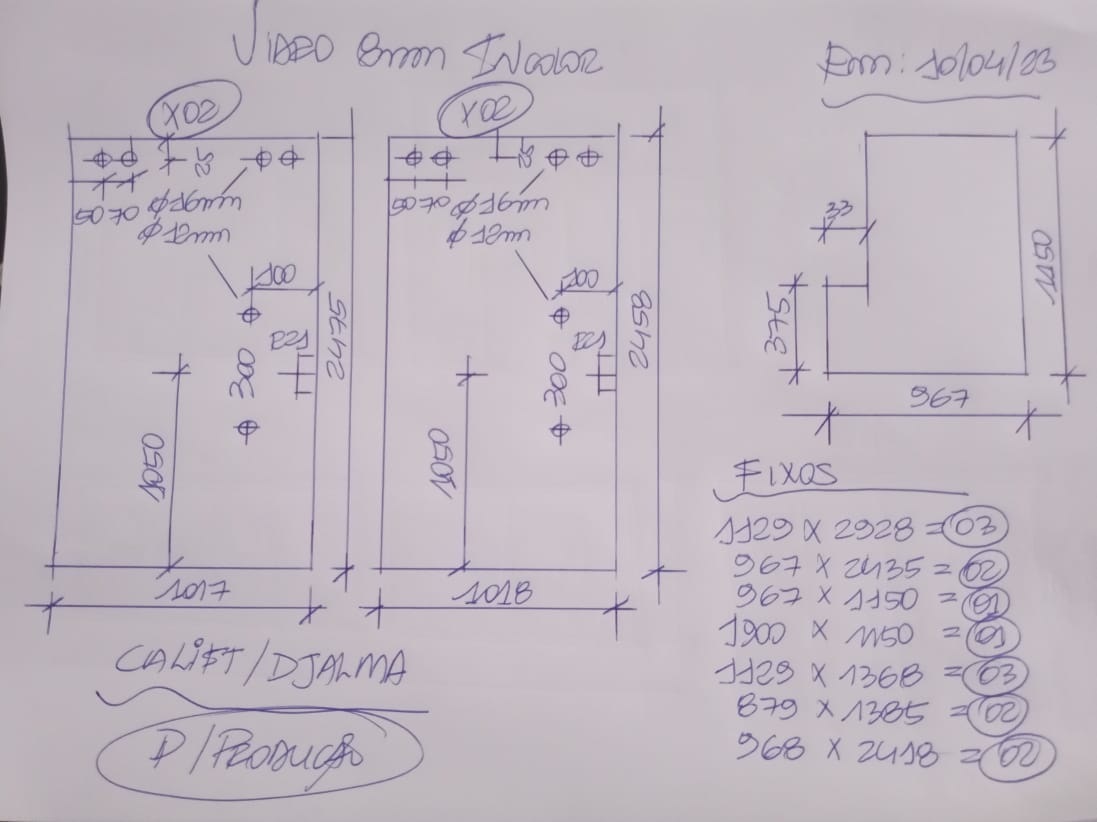 VIDRO 8mm INCOLOR
Em: 10/04/23
X02
X02
25
50 70 φ16mm
φ12mm
100
300
2475
1050
1017
50 70 φ16mm
φ12mm
100
300
2458
1050
1018
33
375
1150
967
FIXOS
1129 X 2928 = 03
967 X 2435 = 02
967 X 1150 = 01
1900 X 1150 = 01
1129 X 1368 = 03
879 X 1385 = 02
968 X 2418 = 02
CALIST/DJALMA
P/PRODUÇÃO